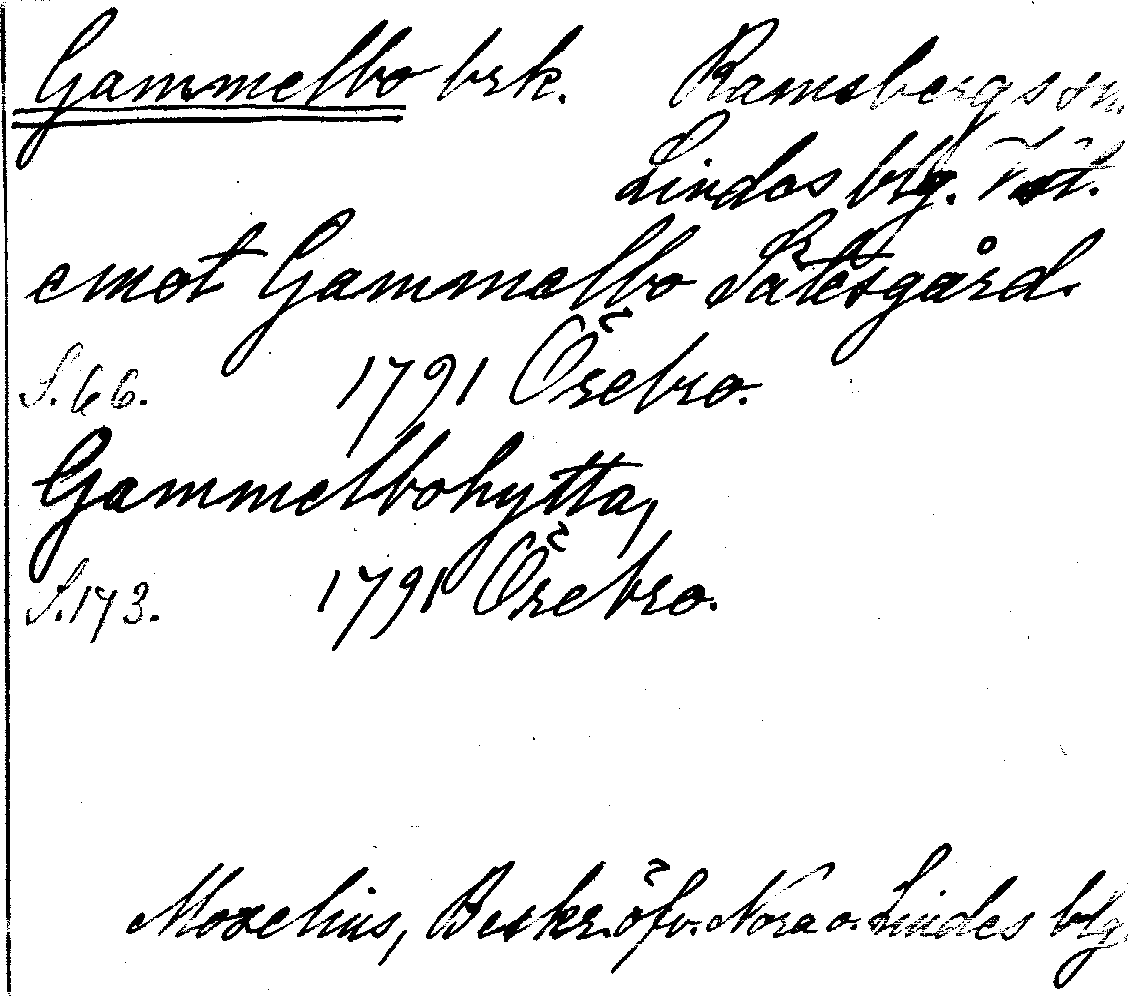 Gammelbo brk. Ramsbergs sn.
Lindes blg. Vstl.
emot Gammelbo Sätesgård.
S. 66. 1791 Örebro.
Gammelbohytta,
S. 173. 1791 Örebro.
Moxelius, Beskr. öfv. Nora o. Lindes blg.